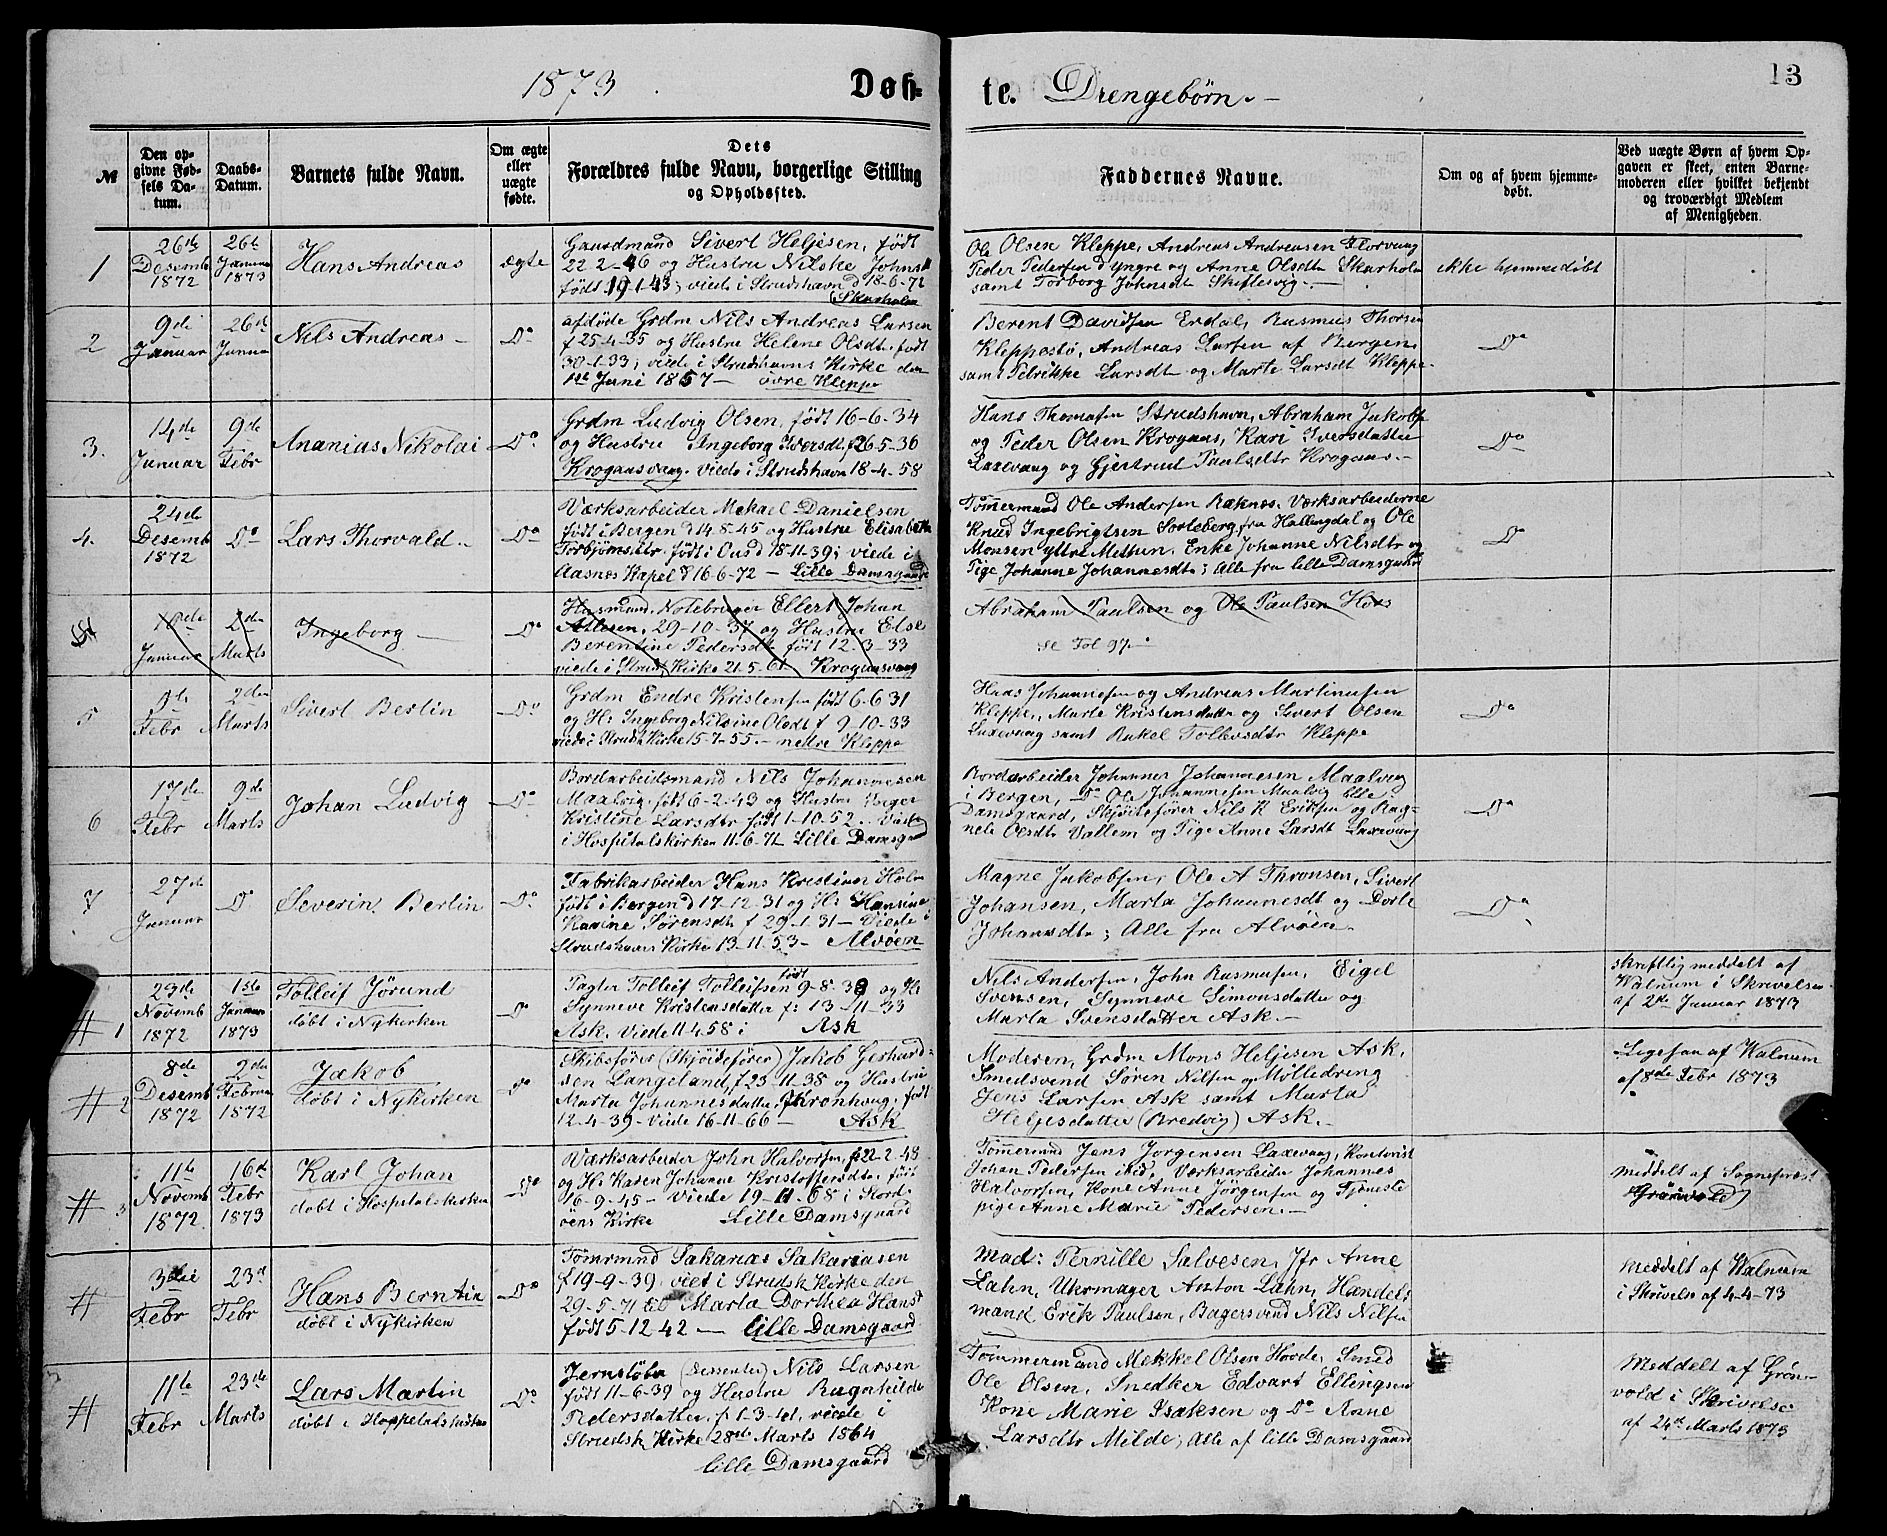 1873
Døb-
te.
Drengebørn.
13
№
Den op-
givne Fød-
sels Da-
tum.
Daabs-
Datum.
Barnets fulde Navn.
Om ægte
eller
uægte
fødte.
Dets
Forældres fulde Navn, borgerlige Stilling
og Opholdssted.
Faddernes Navne.
Om og af hvem hjemme-
døbt.
Ved uægte Børn af hvem Op-
gaven er skeet, enten Barne-
moderen eller hvilket bekjendt
og troværdigt Medlem
af Menigheden.
1
26de
Desemb
1872
26de
Januar
1873
Hans Andreas
ægte
Gaardmand Sivert Heljesen, født
22-2-46 og Hustru Nilske Johns
født 19-1-43; viede i Strudshavn d 18-6-72
Skarholm
Ole Olsen Kleppe, Andreas Andreasen Florvaag
Peder Pedersen d yngre og Anne Olsdtr Skarholm
samt Torborg Johnsdt Skiftesvig.
ikke hjemmedøbt
2
9de
Januar
26de
Januar
Nils Andreas
Do
afdøde Grdm Nils Andreas Larsen
f 25-4-35 og Hustru Helene Olsdtr. født
30-1-33; viede i Strudshavns Kirke den
1ste Juni 1857 - øvre Kleppe
Berent Davidsen Erdal, Rasmus Thorsen
Kleppestø, Andreas Larsen af Bergen
samt Petrikke Larsdt og Marte Larsdt Kleppe.
Do
3.
14de
Januar
9de
Febr
Ananias Nikolai
Do
Grdm Ludvig Olsen, født 16-6-34
og Hustru Ingeborg Iversdt, f 26-5-36
Krogaasvaag. viede i Strudshavn 18-4-58
Hans Thomasen Strudshavn, Abraham Jakobs
og Peder Olsen Krogaas, Kari Iversdatter
Laxevaag og Gjertrud Paulsdtr Krogaas.
Do
4.
24de
Desemb
1872
Do
Lars Thorvald
Do
Værksarbeider Mekael Danielsen
født i Bergen d 14-8-45 og Hustru Elisabeth
Torbjørnsdtr. født i Ous d 18-11-39; viede i
Aasnes Kapel d 16-6-72 - Lille Damsgaard
Tømmermand Ole Andersen Raknes. Værksarbeiderne
Knud Ingebrigtsen Sorteberg fra Hallingdal og Ole
Monsen yttre Methun, Enke Johanne Nilsdtr og
Pige Johanne Johannesdtr; Alle fra lille Damsgaard
Do
18de
Januar
2de
Marts
Ingeborg
Do
Husmand, Notebruger Ellert Johan
Atlesen, 29-10-37 og Hustru Else
Berentine Pedersdt født 12-3-33
viede i Strudsh Kirke 21-5-61 Krogaasvaag
Abraham Paulsen og Ole Paulsen Haas
se Fol 97
5
9de
Febr
2den
Marts
Sivert Bertin
Do
Grdm Endre Kristensen født 6-6-31
og H: Ingeborg Nilsine Olsdt f 9-10-33
viede i Strudsh Kirke 15-7-55. - nedre Kleppe
Hans Johannesen og Andreas Martinusen
Kleppe, Marte Kristensdatter og Sivert Olsen
Laxevaag samt Rakel Tollevsdtr Kleppe
Do
6
17de
Febr
9de
Marts
Johan Ludvig
Do
Bordarbeidsmand Nils Johannesen
Maalvig. født 6-2-43 og Hustru Inger
Kristine Larsdtr født 1-10-52. Viede
i Hospitalskirken 11-6-71 Lille Damsgaard
Bordarbeider Johannes Johannesen Maalvig
i Bergen, Do Ole Johannesen Maalvig lille
Damsgaard, Skjøitefører Nils K Eriksen og Rag-
nele Olsdtr Vallem og Pige Anne Larsdt Laxevaag
Do
7
27de
Januar
Do
Severin Bertin
Do
Fabrikarbeider Hans Kristian Holm
født i Bergen d 17-12-31 og H: Hansine
Karine Sørensdt, f 29-1-31 - Viede i
Strudshavns Kirke 13-11-53 - Alvøen
Magne Jakobsen, Ole A Thronsen, Sivert
Johansen, Marta Johannesdt og Dorte
Johansdtr; Alle fra Alvøen.
Do
# 1
23de
Novemb
1872
1ste
Januar
1873
Tolleif Jörund
døbt i Nykirken
Do
Fagter Tolleif Tolleifsen født 9-8-38 og H:
Synneve Kristensdatter f: 13-11-33
Ask. Viede 11-4-58 i Ask
Nils Andersen, John Rasmusen, Eigel
Svensen, Synneve Simonsdatter og
Marta Svensdatter Ask.
skriftlig meddelt af
Walnum i Skrivelse
af 2de Januar 1873
# 2
8de
Desemb
1872
2den
Februar
1872
Jakob
døbt i Nykirken
Do
Skibsfører (Skjøidefører) Jakob Gerhard-
sen Langeland, f 23-11-38 og Hustru
Marta Johannesdatter, Thronhaug, født
12-4-39 - Viede 16-11-66 - Ask
Moderen, Grdm Mons Heljesen Ask,
Smedsvend Søren Nilsen og Mølledreng
Jens Larsen Ask samt Marta
Heljesdatter (Bredvig) Ask.
Ligesaa af Walnum
af 8de Febr 1873
# 3
11te
Novemb
1872
16de
Febr
1873
Karl Johan
døbt i Hospitalskirken
Do
Værksarbeider John Halvorsen, f 22-2-48
og H: Karen Johanne Kristoffersdtr. født
16-9-45 - Viede 19-11-68 i Stord-
øens Kirke Lille Damsgaard
Tømmermd Jens Jørgensen Laxevaag, Kontorist
Johan Pedersen ibid, Værksarbeider Johannes
Halvorsen, Kone Anne Jørgensen og Tjeneste
pige Anne Marie Pedersen.
Meddelt af Sognepræst
Grønvold
#
3die
Febr
23de
Febr
Hans Berntin
døbt i Nykirken
Do
Tømrmnd Sakarias Sakariasen
f 19-9-39, viet i Strudsh Kirke den
29-5-71 til Marta Dorthea Hansd
født 5-12-42 - lille Damsgaard
Mad: Pernille Salvesen, Jfr Anne
Lahn, Uhrmager Anton Lahn, Handels
mand Erik Paulsen, Bagersvend Nils Nilsen
Meddelt af Walnum
i Skrivels af 4-4-73
#
11te
Febr
23de
Marts
Lars Martin
døbt i Hoppetalskirken
Do
Jernstøber (Dessenter) Nils Larsen
født 11-6-39 og Hustru Ragnhilde
Pedersdatter, f 1-3-41, viede i
Strudsh Kirke 28de Marts 1864
lille Damsgaard
Tømmermand Mekkel Olsen Hovde, Smed
Ole Olsen, Snedker Edvart Ellengsen
Kone Marie Isaksen og Do Anne
Larsdtr Milde; Alle af lille Damsgaard
Meddelt af Grøn-
vold i Skrivelse
af 24de Marts 1873